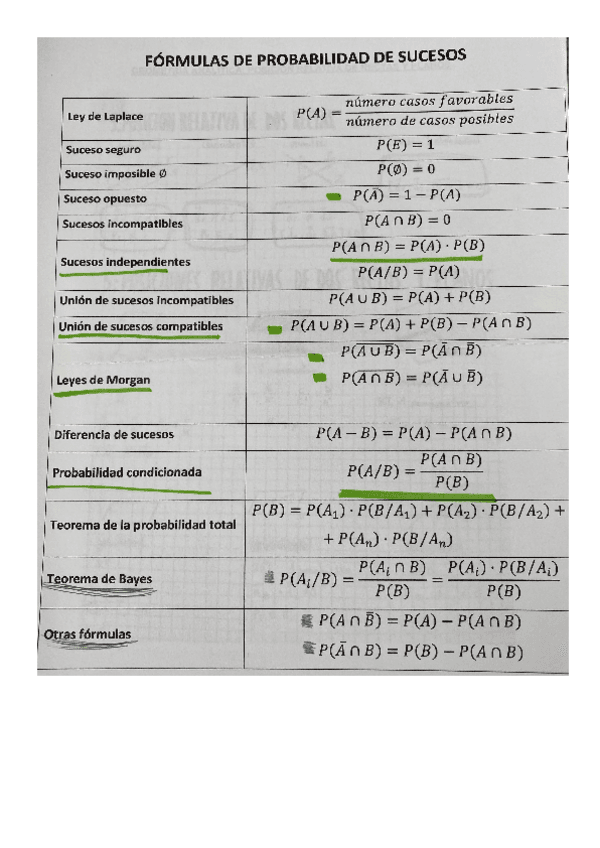 FÓRMULAS DE PROBABILIDAD DE SUCESOS
Ley de Laplace P(A) = número casos favorables / número de casos posibles
Suceso seguro P(E) = 1
Suceso imposible Ø P(Ø) = 0
Suceso opuesto P(Ā) = 1 − P(A)
Sucesos incompatibles P(A ∩ B) = 0
Sucesos independientes P(A ∩ B) = P(A) · P(B)
P(A/B) = P(A)
Unión de sucesos incompatibles P(A ∪ B) = P(A) + P(B)
Unión de sucesos compatibles P(A ∪ B) = P(A) + P(B) − P(A ∩ B)
Leyes de Morgan P(A̅ ̅∪̅ ̅B̅) = P(Ā ∩ B̄)
P(A̅ ̅∩̅ ̅B̅) = P(Ā ∪ B̄)
Diferencia de sucesos P(A − B) = P(A) − P(A ∩ B)
Probabilidad condicionada P(A/B) = P(A ∩ B) / P(B)
Teorema de la probabilidad total P(B) = P(A₁) · P(B/A₁) + P(A₂) · P(B/A₂) +
+ P(Aₙ) · P(B/Aₙ)
Teorema de Bayes P(Aᵢ/B) = P(Aᵢ ∩ B) / P(B) = P(Aᵢ) · P(B/Aᵢ) / P(B)
Otras fórmulas P(A ∩ B̄) = P(A) − P(A ∩ B)
P(Ā ∩ B) = P(B) − P(A ∩ B)